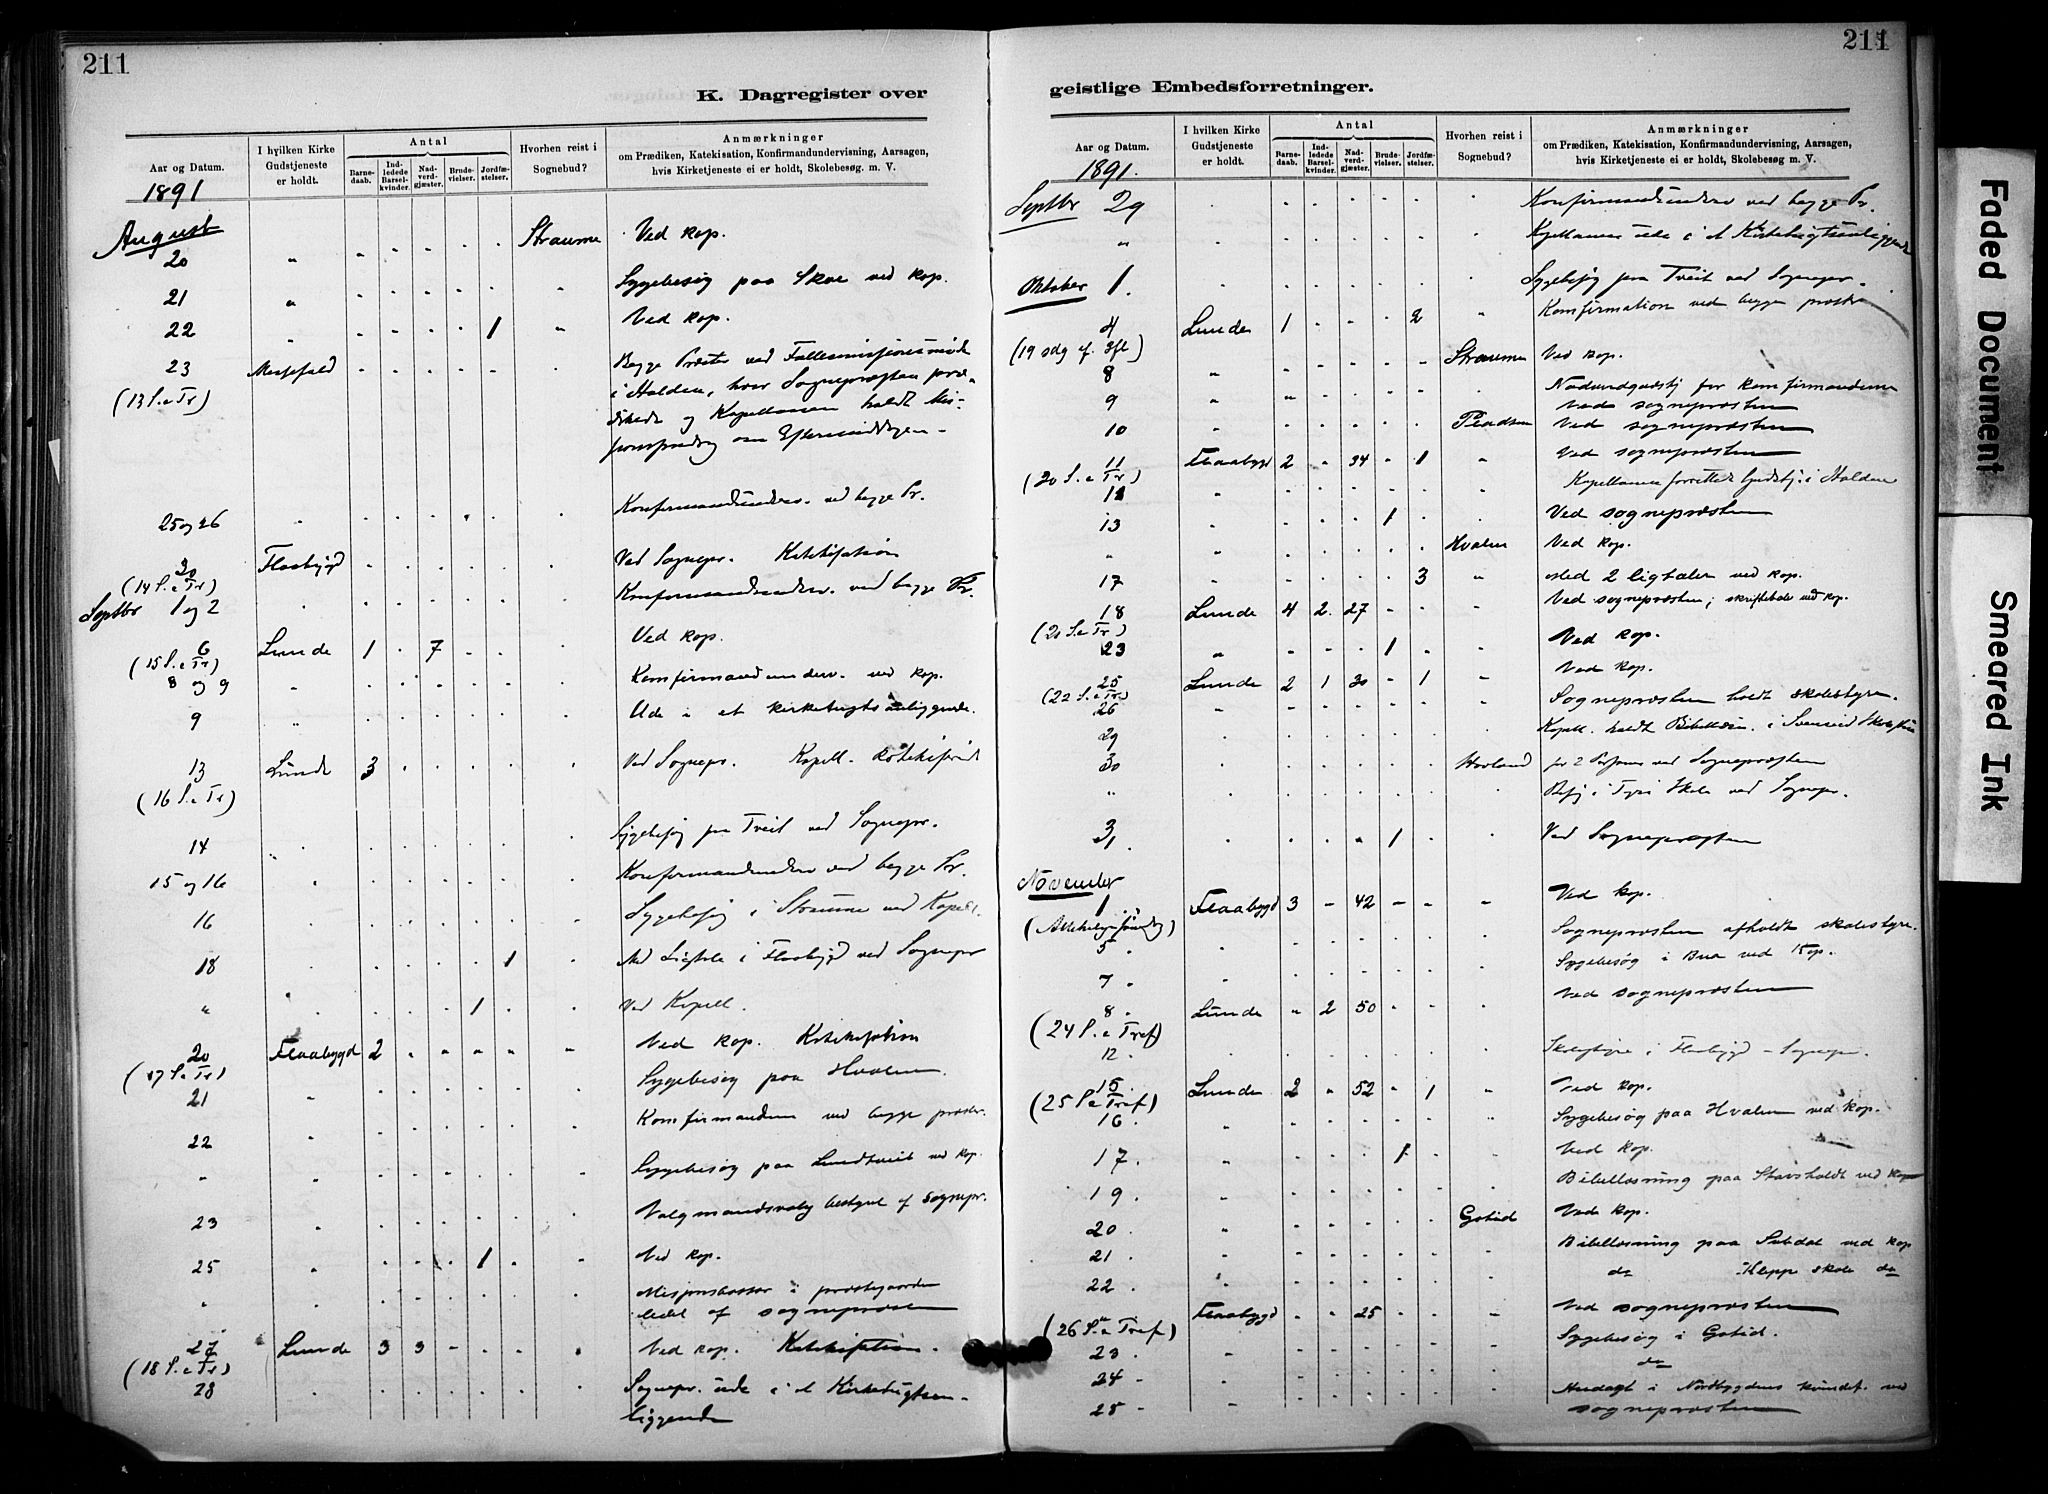 211
K. Dagregister over
Aar og Datum.
I hvilken Kirke Gudstjeneste er holdt.
Antal
Barnedaab.
Indledede Barselkvinder.
Nadverdgjæster.
Brudevielser.
Jordfæstelser.
Hvorhen reist i Sognebud?
Anmærkninger
om Prædiken, Katekisation, Konfirmandundervisning, Aarsagen,
hvis Kirketjeneste ei er holdt, Skolebesøg. m. V.
1891
August
20 " Straume Ved kop.
21 " Sygebesøg paa Skoe ved kop.
22 1 " Ved kop.
23 Begge Præster ved Fællesmissionsmøde
(13 S. e Tr) i Holden, hvor Sognepræsten præ-
dikede og Kapellanen holdt Mis-
om Eftermiddagen
25 og 26 Konfirmandunderv. ved begge Pr.
30 Flaabygd Ved Sognepr. Katekisation
(14 S. e Tr)
Septbr 1 og 2 Konfirmandunderv. ved begge Pr.
6 Lunde 1 7 Ved kop.
(15 S. e Tr)
8 og 9 Konfirmandunderv. ved kop.
9 Ude i et kirketugtsanliggende.
13 Lunde 3 Ved Sognepr. Kapell. katekiserede
(16 S. e Tr)
14 Sygebesøg paa Tveit ved Sognepr.
15 og 16 Konfirmandunderv ved begge Pr.
16 Sygebesøg i Straume ved Kapell.
18 1 Med Ligtale i Flaabygd ved Sognepr
" 1 Ved Kapell.
20 Flaabygd 2 Ved kop. Katekisation
(17 S. e Tr)
21 Sygebesøg paa Hvalen.
22 Konfirmanden ved begge præster.
" Sygebesøg paa Lundtveit ved kop.
23 Valgmandsvalg bestyret af sognepr.
25 1 Ved kop.
" i præstegaarden
ledet af sognepræsten
27 Lunde 3 3 Ved kop. Katekisation.
(18 S. e Tr)
28 Sognepr. ude i et Kirketugtsan-
liggende
211
geistlige Embedsforretninger.
Aar og Datum.
I hvilken Kirke Gudstjeneste er holdt.
Antal
Barnedaab.
Indledede Barselkvinder.
Nadverdgjæster.
Brudevielser.
Jordfæstelser.
Hvorhen reist i Sognebud?
Anmærkninger
om Prædiken, Katekisation, Konfirmandundervisning, Aarsagen,
hvis Kirketjeneste ei er holdt, Skolebesøg m. V.
1891.
Septbr 29 Konfirmandunderv ved begge Pr.
" Kapellanen ude i et Kirketugtsanliggende
Oktober 1. Sygebesøg paa Tveit ved Sognepr.
4 Lunde 1 2 " Konfirmation ved begge præster
(19 sdg e. Tref)
8 " Straume Ved kop.
9 " for konfirmanderne
Ved sognepræsten
10 Ved sognepræsten
11 Flaabygd 2 " 34 - 1 " Ved sognepræsten
(20 S. e Tr)
12 " Kapellanen forrettet Gudstj. i Holden
13 " 1 Ved sognepræsten
" " Hvalen Ved kop.
17 " 3 " Med 2 ligtaler ved kop.
18 Lunde 4 2 27 Ved sognepræsten; skriftetale ved kop.
(21 S. e Tr)
23 " 1 Ved kop.
25 Lunde 2 1 30 - 1 Ved kop.
(22 S. e Tr)
26 " Sognepræsten holdt skolestyre.
29 Kapell. holdt Bibellæsn. i
30 Hovland for 2 Personer ved Sognepræsten
" Besøg i Skole ved Sognepr.
31. 1 Ved Sognepræsten
November
1. Flaabygd 3 - 42 - - - Ved kop.
(Allehelgensøndag)
5 Sognepræsten afholdt skolestyre.
7. Sygebesøg i Bua ved Kop.
8. Lunde " 2 50 Ved sognepræsten
(24 S. e Tref)
12. Skolestyre i Flaabygd - Sognepr.
15 Lunde 2 " 52 - 1 " Ved kop.
(25 S. e Tref)
16. " Sygebesøg paa Hvalen ved kop.
17. " 1 Ved kop.
19. " Bibellæsning paa Stavsholdt ved kop
20. " Gotuid Ved kop.
21. " Bibellæsning paa ved kop
22. " do Klepp skole do
Flaabygd " 25 Ved sognepræsten
(26 S. e Tref)
23. " Sygebesøg i Gotuid.
24 - do
25 - " i Nordbygdens ved
sognepræsten
Faded Document
Smeared Ink